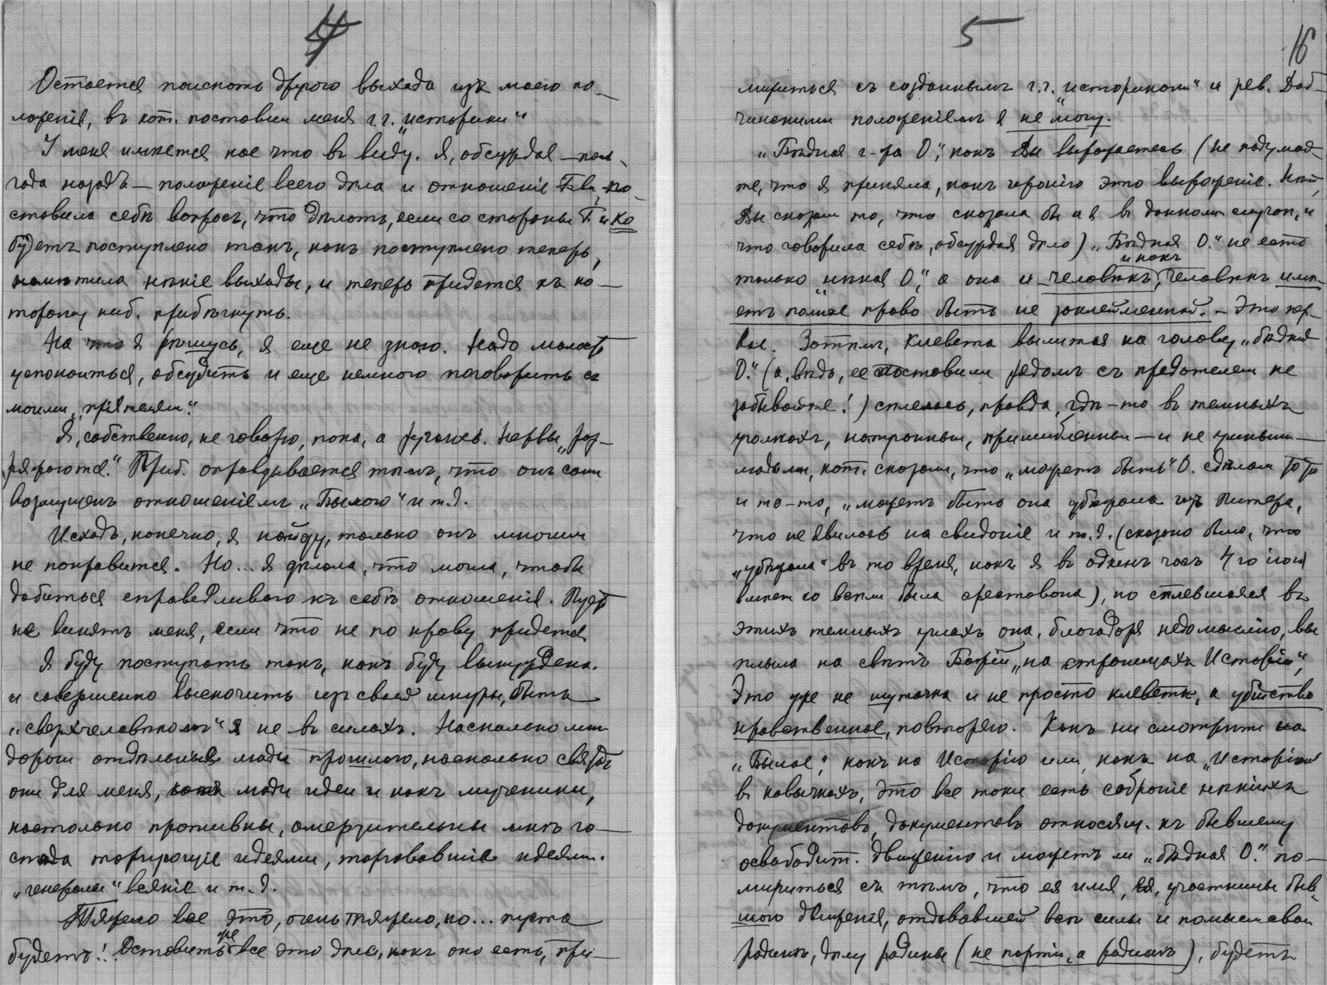 4
Остается поискать другого выхода изъ моего по-
ложенія, въ кот. поставили меня г.г. „историки“
У меня имѣется кое что въ виду. Я, обсуждая — пол-
года назадъ — положеніе всего дѣла и отношеніе
ставила себѣ вопросъ, что дѣлать, если со стороны Б. и Ко
будетъ поступлено такъ, какъ поступлено теперь,
намѣтила нѣкіе выходы, и теперь придется къ ко-
торому ниб. прибѣгнуть.
На что я рѣшусь, я еще не знаю. Надо малость
успокоиться, обсудить и еще немного поговорить съ
моими „пріятелями“.
Я, собственно, не говорю, пока, а ругаюсь. Нервы „раз-
ряжаются“. Приб. оправдывается тѣмъ, что онъ самъ
возмущенъ отношеніемъ „Былого“ и т.д.
Исходъ, конечно, я найду, только онъ многимъ
не понравится. Но... я дѣлала, что могла, чтобы
добиться справедливаго къ себѣ отношенія. Пусть
не винятъ меня, если что не по нраву придется.
Я буду поступать такъ, какъ буду вынуждена.
и совершенно выскочить изъ своей шкуры, быть
„сверхчеловѣкомъ“ я не въ силахъ. Насколько мнѣ
дороги отдѣльные люди прошлаго, насколько святы
они для меня, какъ люди идеи и какъ мученики,
настолько противны, омерзительны мнѣ го-
спода торгующіе идеями, торговавшіе идеями.
„генералы“ всякіе и т.д.
Тяжело все это, очень тяжело, но... пусть
будетъ!! Оставить же все это дѣло, какъ оно есть, при-
5
16
мириться съ созданнымъ г.г. „историками“ и рев. Доб-
чинскими положеніемъ я не могу.
„Бѣдная г-жа О“, какъ Вы выражаетесь (не подумай-
те, что я приняла, какъ иронію это выраженіе. Нѣтъ,
Вы сказали то, что сказала бы и я въ данномъ случаѣ, и
что говорила себѣ, обсуждая дѣло) „Бѣдная О.“ не есть
только „нѣкая О“, а она и человѣкъ, и какъ человѣкъ имѣ-
етъ полное право быть не заклейменной. — Это пер-
вое. Затѣмъ, клевета вылитая на голову „бѣдной
О.“ (а, вѣдь, ее поставили рядомъ съ предателем не
забывайте!) сплелась, правда, гдѣ-то въ темныхъ
уголкахъ, нетрогными, пришибленными — и не умными —
людьми, кот. сказали, что „можетъ быть“ О. сдѣлала то-то
и то-то, „можетъ быть она убѣжала изъ Питера,
что не явилась на свиданіе и т.д. (сказано было, что
„убѣжала“ въ то время, какъ я въ одинъ часъ 4го іюня
вмѣстѣ со всѣми была арестована), но сплевшаяся въ
этихъ темныхъ углахъ она, благодаря недомыслію, вы-
плыла на свѣтъ Божій „на страницахъ Исторіи“,
Это уже не шуточка и не просто клевета, а убійство
нравственное, повторяю. Какъ ни смотрите на
„Былое“, какъ на Исторію или, какъ на „Исторію“
въ кавычкахъ, это все таки есть собраніе нѣкіихъ
документовъ, документовъ относящ. къ бывшему
освободит. движенію и можетъ ли „бѣдная О.“ по-
мириться съ тѣмъ, что ея имя, ея, участницы быв-
шаго движенія, отдававшей всѣ силы и помыслы свои
родинѣ, дѣлу родины (не партіи, а родинѣ), будетъ